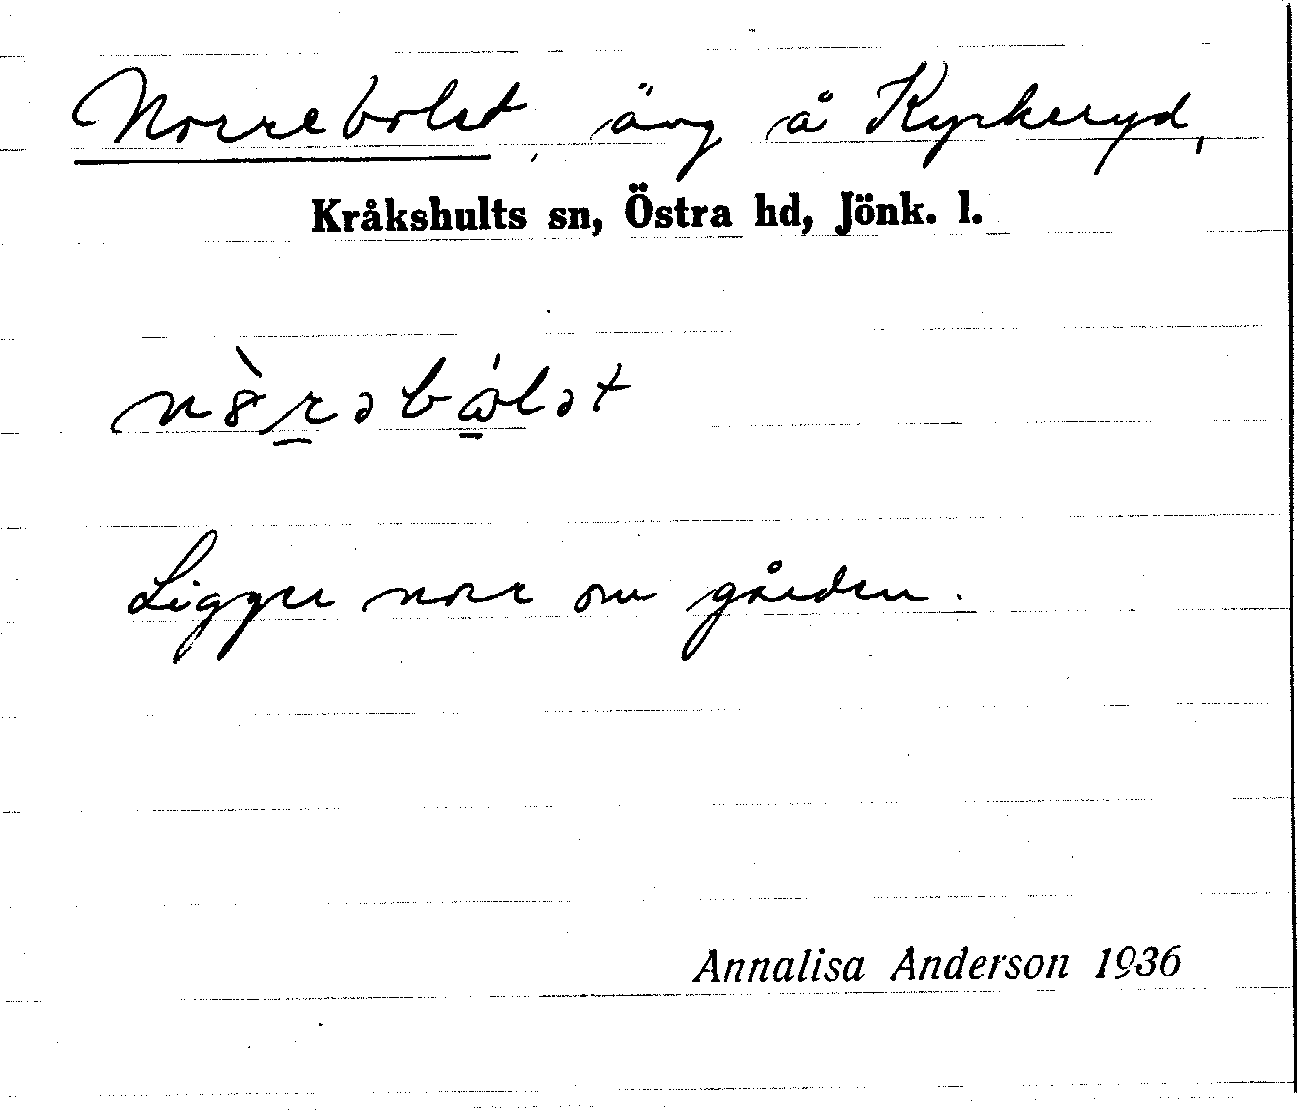 Norrebolet, äng å Kyrkeryd,
Kråkshults sn, Östra hd, Jönk. l.
n8̀rəbɷ́lət
Ligger norr om gården.
Annalisa Anderson 1936